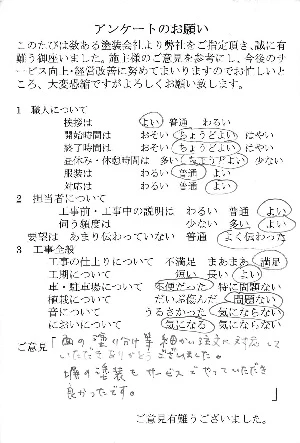 アンケートのお願い
このたびは数ある塗装会社より弊社をご指定頂き、誠に有
難う御座いました。施主様のご意見を参考にし、今後のサ
ービス向上・経営改善に努めてまいりますのでお忙しいと
ころ、大変恐縮ですがよろしくお願い致します。
1 職人について
挨拶は よい 普通 わるい
開始時間は おそい ちょうどよい はやい
終了時間は おそい ちょうどよい はやい
昼休み・休憩時間は 多い ちょうどよい 少ない
服装は わるい 普通 よい
対応は わるい 普通 よい
2 担当者について
工事前・工事中の説明は わるい 普通 よい
伺う頻度は 少ない 多い よい
要望は あまり伝わっていない 普通 よく伝わった
3 工事全般
工事の仕上りについて 不満足 まあまあ 満足
工期について 短い 長い よい
車・駐車場について 不便だった 特に問題ない
植栽について だいぶ傷んだ 問題ない
音について うるさかった 気にならない
においについて 気になる 気にならない
ご意見「面の塗り分け等細かい注文に対応して
いただきありがとうございました。
塀の塗装もサービスでやっていただき
良かったです。」
ご意見有難うございました。